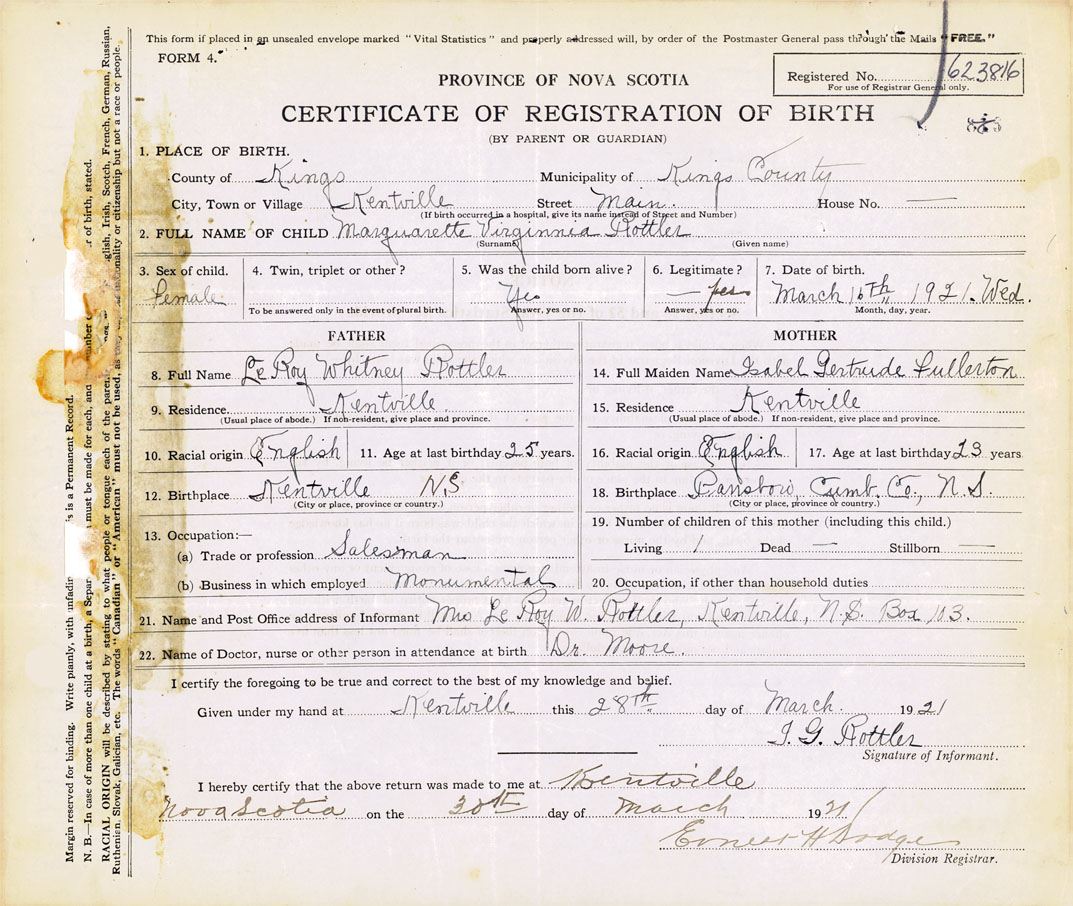 This form if placed in an unsealed envelope marked "Vital Statistics" and properly addressed will, by order of the Postmaster General pass through the Mails "FREE."
FORM 4.
Registered No. 623816
For use of Registrar General only.
PROVINCE OF NOVA SCOTIA
CERTIFICATE OF REGISTRATION OF BIRTH
(BY PARENT OR GUARDIAN)
1. PLACE OF BIRTH.
County of Kings Municipality of Kings County
City, Town or Village Kentville Street Main. House No. —
(If birth occurred in a hospital, give its name instead of Street and Number)
2. FULL NAME OF CHILD Marguarette Virginnia Rottler
(Surname) (Given name)
3. Sex of child. 4. Twin, triplet or other? 5. Was the child born alive? 6. Legitimate? 7. Date of birth.
Female Yes — yes March 16th 1921. Wed.
To be answered only in the event of plural birth. Answer, yes or no. Answer, yes or no. Month, day, year.
FATHER MOTHER
8. Full Name Le Roy Whitney Rottler 14. Full Maiden Name Isabel Gertrude Fullerton
9. Residence Kentville. 15. Residence Kentville
(Usual place of abode.) If non-resident, give place and province. (Usual place of abode.) If non-resident, give place and province.
10. Racial origin English 11. Age at last birthday 25 years. 16. Racial origin English 17. Age at last birthday 23 years
12. Birthplace Kentville N.S 18. Birthplace Parrsboro, Cumb. Co., N.S.
(City or place, province or country.) (City or place, province or country.)
13. Occupation:— 19. Number of children of this mother (including this child.)
(a) Trade or profession Salesman Living 1 Dead — Stillborn —
(b) Business in which employed Monumental 20. Occupation, if other than household duties
21. Name and Post Office address of Informant Mrs Le Roy W. Rottler, Kentville, N.S. Box 103.
22. Name of Doctor, nurse or other person in attendance at birth Dr. Moore.
I certify the foregoing to be true and correct to the best of my knowledge and belief.
Given under my hand at Kentville this 28th day of March. 1921
I. G. Rottler
Signature of Informant.
I hereby certify that the above return was made to me at Kentville
Nova Scotia on the 30th day of March 1921
Ernest H Dodge
Division Registrar.
Margin reserved for binding. Write plainly, with unfadin is is a Permanent Record.
N. B.—In case of more than one child at a birth, a Separ must be made for each, and number r of birth, stated.
RACIAL ORIGIN will be described by stating to what people or tongue each of the paren glish, Irish, Scotch, French, German, Russian,
Ruthenian, Slovak, Galician, etc. The words "Canadian" or "American" must not be used, as they ationality or citizenship but not a race or people.